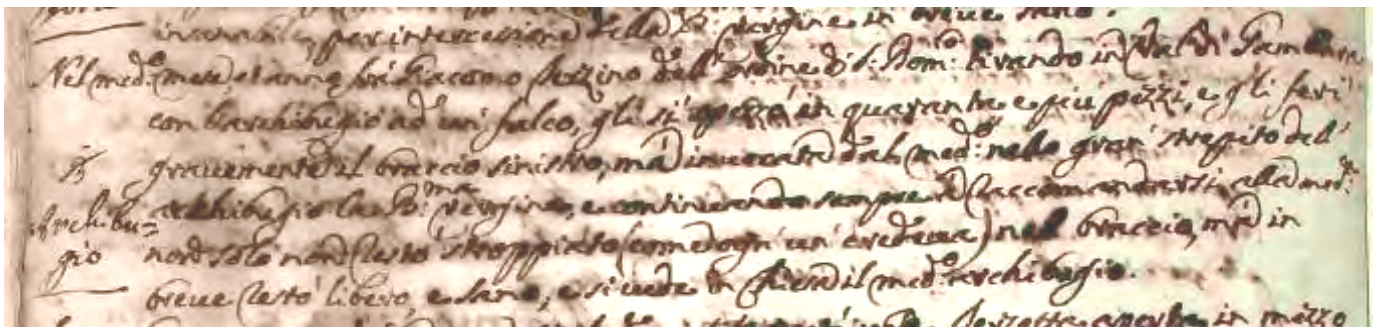 per intercessione della B: Vergine in breve sano.
Nel med:º mese, et anno frà Giacomo Pezzino dell'ordine di S: Dom:co tirando in Val di
con l'archibugio ad un falco, gli si in quaranta e più pezzi, e gli ferì
13 gravemente il braccio sinistro, mà invocata dal med:º nello gran strepito dell'
archibugio la S:ma Vergine, e continuando sempre à raccomandarsi alla med:ª
Archibu=
gio
non solo non restò stroppiato (come ogn'un credeva) nel braccio, mà in
breve restò libero, e sano, e si vede in Chiesa il med:º archibugio.
in mezzo